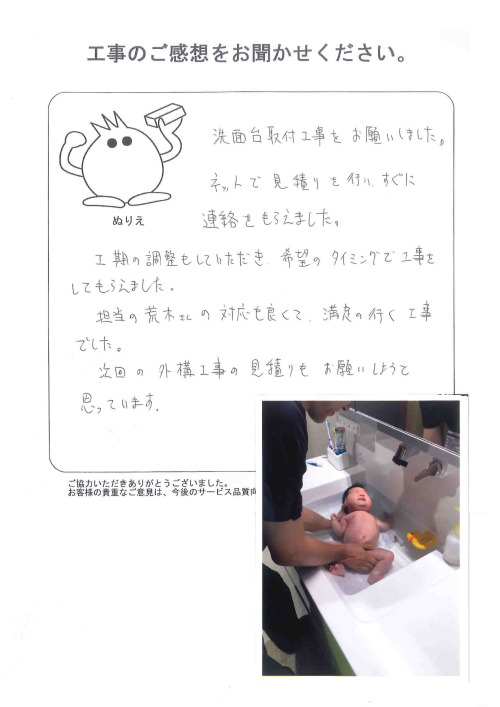 工事のご感想をお聞かせください。
洗面台取付工事をお願いしました。
ネットで見積りを行い、すぐに
連絡をもらえました。
ぬりえ
工期の調整もしていただき、希望のタイミングで工事を
してもらえました。
担当の荒木さんの対応も良くて、満足の行く工事
でした。
次回の外構工事の見積りもお願いしようと
思っています。
ご協力いただきありがとうございました。
お客様の貴重なご意見は、今後のサービス品質向